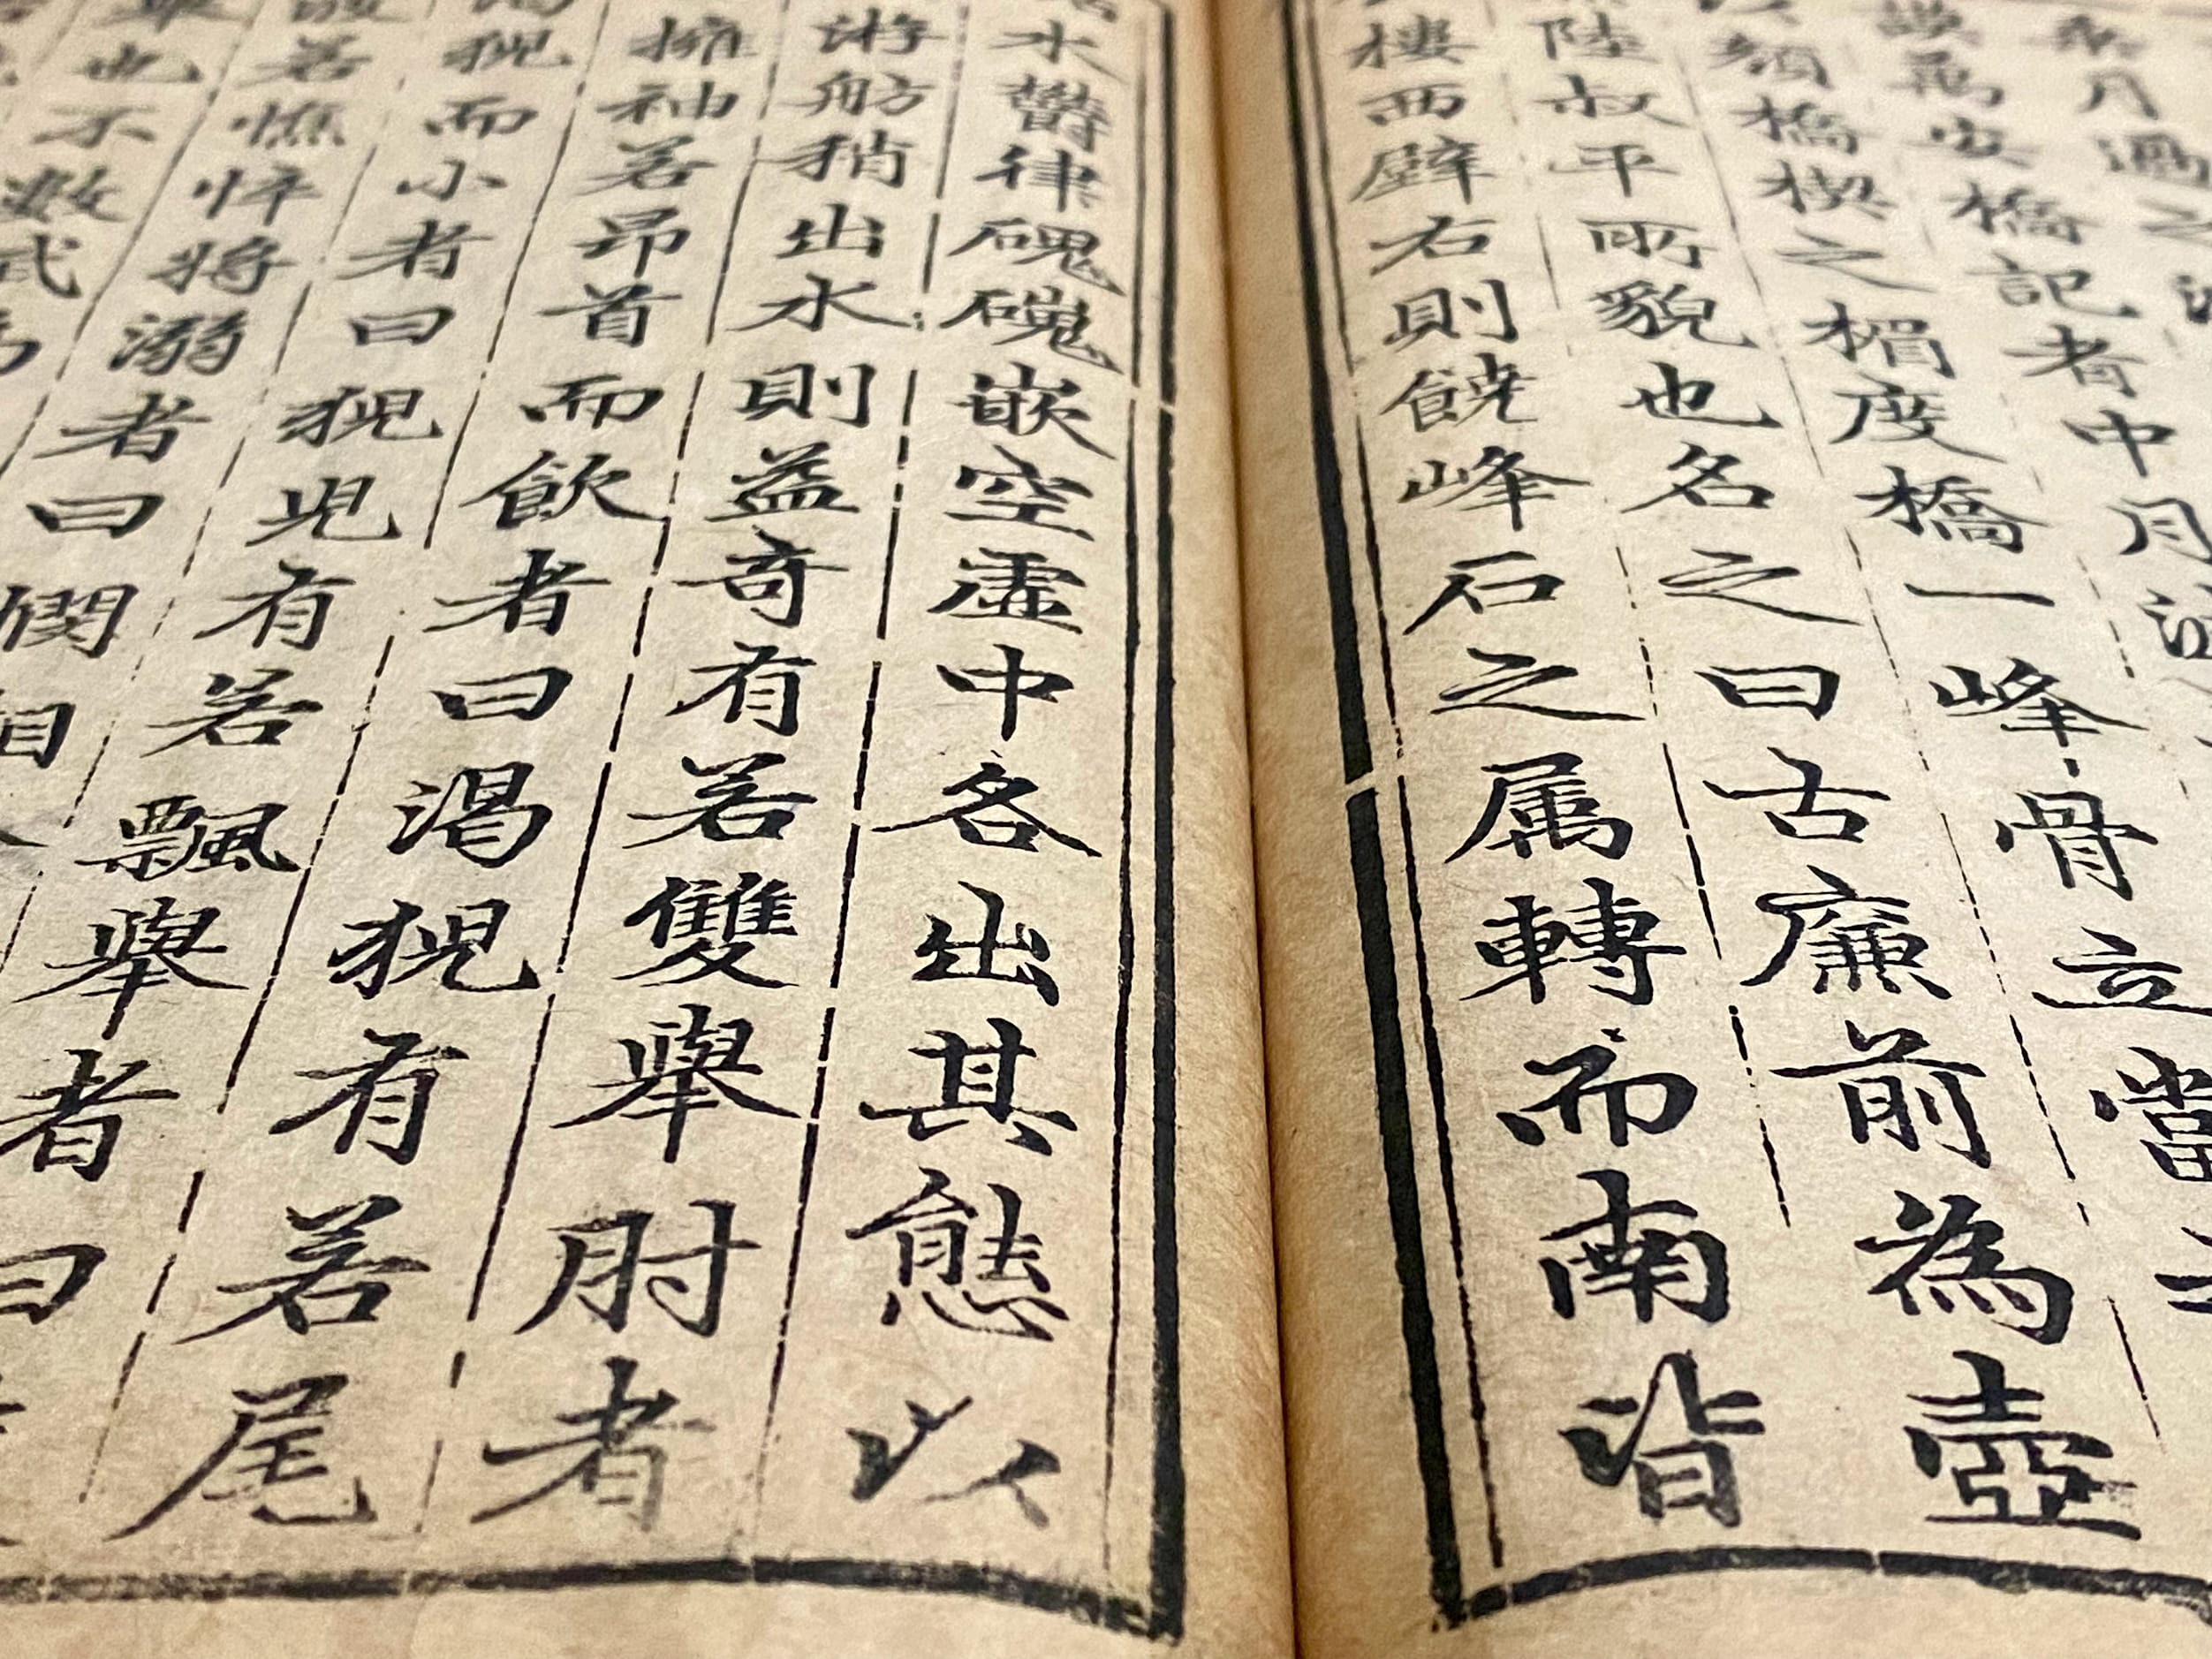 月過之
安橋記者中月
額橋楔之楣度橋一峰骨立當
陸叔平所貌也名之曰古廉前為壺
樓西壁右則饒峰石之属轉而南皆
水欝律磈磈嵌空虛中各出其態以
游舫稍出水則益奇有若雙舉肘者
擁袖若昂首而飲者曰渴猊有若尾
猊而小者曰猊児有若飄舉者曰
若憔悴將溺者曰憫相
也不數武